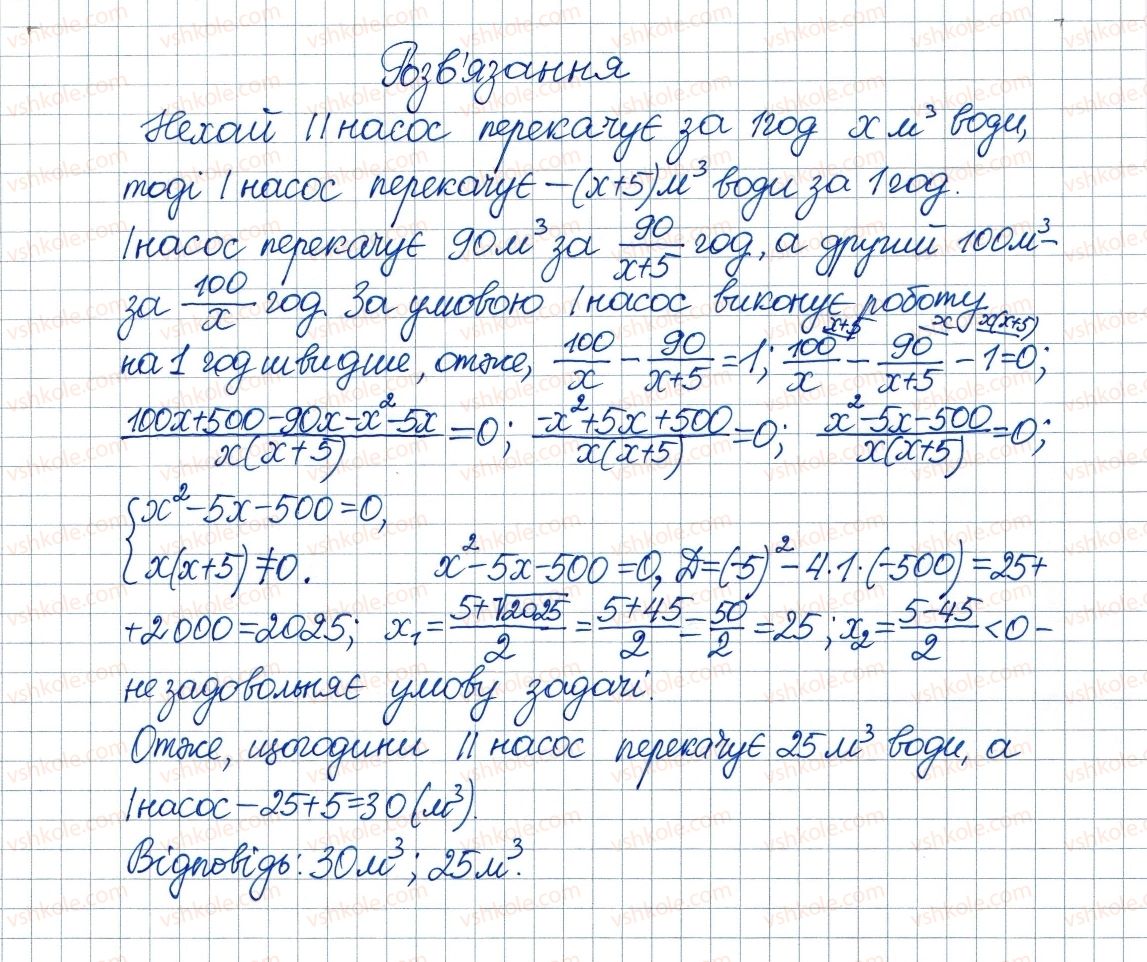 Розв'язання
Нехай II насос перекачує за 1 год x м³ води,
тоді I насос перекачує – (x+5) м³ води за 1 год.
I насос перекачує 90 м³ за 90/(x+5) год, а другий 100 м³ –
за 100/x год. За умовою I насос виконує роботу
на 1 год швидше, отже, 100/x - 90/(x+5) = 1; 100/x (x+5) - 90/(x+5) (x) - 1 (x(x+5)) = 0;
(100x+500-90x-x²-5x)/(x(x+5)) = 0; (-x²+5x+500)/(x(x+5)) = 0; (x²-5x-500)/(x(x+5)) = 0;
{ x²-5x-500=0,
x(x+5)≠0. x²-5x-500=0, D=(-5)²-4·1·(-500)=25+
+2000=2025; x₁=(5+√2025)/2=(5+45)/2=50/2=25; x₂=(5-45)/2<0 –
не задовольняє умову задачі.
Отже, щогодини II насос перекачує 25 м³ води, а
I насос – 25+5=30 (м³).
Відповідь: 30 м³; 25 м³.
vshkole.com